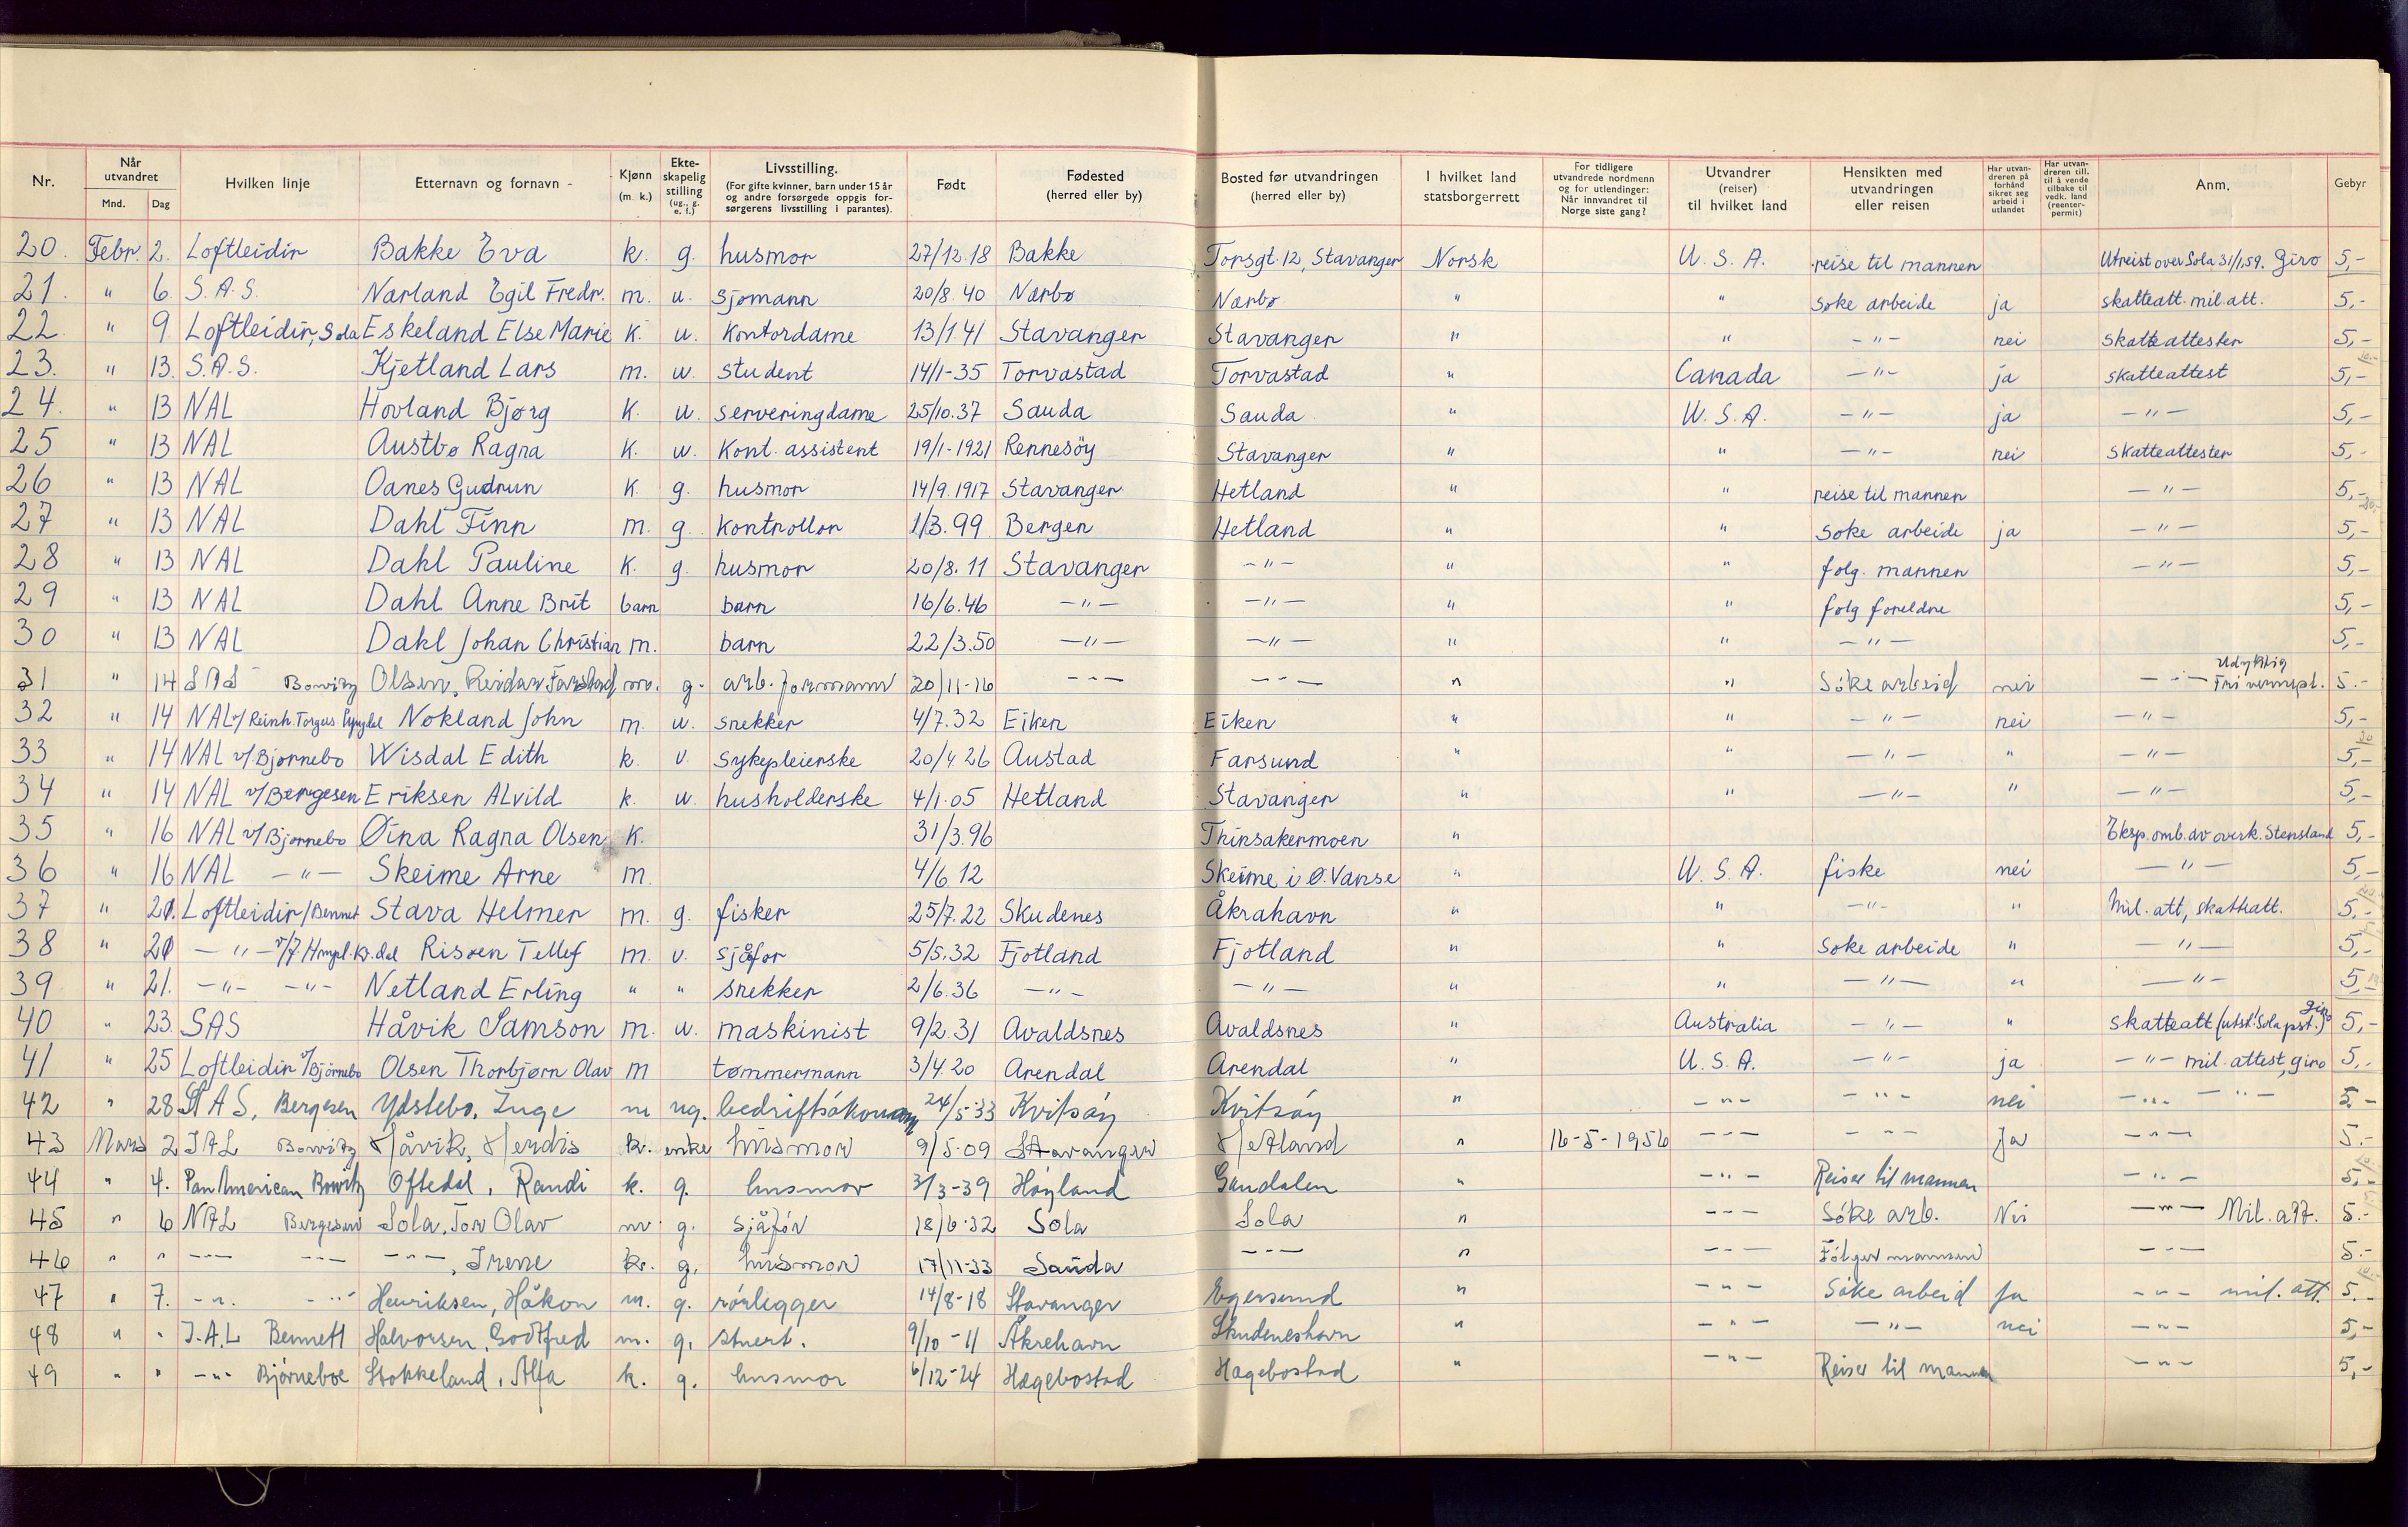 Nr. Når utvandret Mnd. Dag Hvilken linje Etternavn og fornavn - Kjønn (m. k.) Ekteskapelig stilling (ug., g. e. f.) Livsstilling. (For gifte kvinner, barn under 15 år og andre forsørgede oppgis forsørgerens livsstilling i parantes). Født Fødested (herred eller by) Bosted før utvandringen (herred eller by) I hvilket land statsborgerrett For tidligere utvandrede nordmenn og for utlendinger: Når innvandret til Norge siste gang? Utvandrer (reiser) til hvilket land Hensikten med utvandringen eller reisen Har utvandreren på forhånd sikret seg arbeid i utlandet Har utvandreren till. til å vende tilbake til vedk. land (reenter-permit) Anm. Gebyr
20. Febr. 2. Loftleidir Bakke Eva k. g. husmor 27/12.18 Bakke Torsgt. 12, Stavanger Norsk U.S.A. reise til mannen Utreist over Sola 31/1.59. Giro 5,-
21. " 6. S.A.S. Nærland Egil Fredr. m. u. sjømann 20/8.40 Nærbø Nærbø " " søke arbeide ja skatteatt. mil.att. 5,-
22. " 9. Loftleidir, Sola Eskeland Else Marie K. u. kontordame 13/1.41 Stavanger Stavanger " " -"- nei skatteattester 5,-
23. " 13. S.A.S. Kjetland Lars m. u. student 14/1-35 Torvastad Torvastad " Canada -"- ja skatteattest 5,-
24. " 13 NAL Hovland Bjørg K. u. serveringdame 25/10.37 Sauda Sauda " U.S.A. -"- ja -"- 5,-
25 " 13 NAL Austbø Ragna K. u. Kont. assistent 19/1-1921 Rennesöy Stavanger " " -"- nei skatteattester 5,-
26 " 13 NAL Oanes Gudrun K. g. husmor 14/9.1917 Stavanger Hetland " " reise til mannen -"- 5,-
27 " 13 NAL Dahl Finn m. g. kontrollør 1/3.99 Bergen Hetland " " søke arbeide ja -"- 5,-
28 " 13 NAL Dahl Pauline K. g. husmor 20/8.11 Stavanger -"- " " følg. mannen -"- 5,-
29 " 13 NAL Dahl Anne Brit barn barn 16/6.46 -"- -"- " " følg foreldre 5,-
30 " 13 NAL Dahl Johan Christian m. barn 22/3.50 -"- -"- " " -"- 5,-
31 " 14 SAS Bowitz Olsen, Reidar m. g. arb. formann 20/11-16 -"- -"- " " Söke arbeid nei -"- 5.-
32 " 14 NAL v/ Reinh. Torgus Lyngdal Nøkland John m. u. snekker 4/7.32 Eiken Eiken " " -"- nei -"- 5,-
33 " 14 NAL v/Bjørnebo Wisdal Edith k. u. sykepleierske 20/4.26 Austad Farsund " " -"- " -"- 5,-
34 " 14 NAL v/Bergesen Eriksen Alvild k. u. husholderske 4/1.05 Hetland Stavanger " " -"- " -"- 5,-
35 " 16 NAL v/Bjørnebo Øina Ragna Olsen K. 31/3.96 Thinsakermoen " Eksp. omb. av overk. Stensland 5,-
36 " 16 NAL -"- Skeime Arne m. 4/6.12 Skeime i Ø. Vanse " U.S.A. fiske nei -"- 5,-
37 " 20. Loftleidir/Bennet Stava Helmer m. g. fisker 25/7.22 Skudenes Åkrahavn " " -"- " Mil. att, skatteatt. 5,-
38 " 20 -"- Kv.dal Risøen Tellef m. u. sjåfør 5/5.32 Fjotland Fjotland " " søke arbeide " -"- 5,-
39 " 21. -"- -"- Netland Erling " " snekker 2/6.36 -"- -"- " " -"- " -"- 5,-
40 " 23. SAS Håvik Samson m. u. maskinist 9/2.31 Avaldsnes Avaldsnes " Australia -"- " skatteatt (utst. Sola pst.) giro 5,-
41 " 25 Loftleidir v/Bjørnebo Olsen Thorbjørn Olav m tømmermann 3/4.20 Arendal Arendal " U.S.A. -"- ja -"- mil. attest, giro 5,-
42 " 28 SAS, Bergesen Ydstebø, Inge m ug. bedriftsökonom 24/5-33 Kvitsöy Kvitsöy " -"- -"- nei -"- -"- 5.-
43 Mars 2 IAL Bowitz Håvik, Herdis k. enke husmor 9/5-09 Stavanger Hetland " 16-5-1956 -"- -"- Ja -"- 5.-
44 " 4. Pan American Bowitz Oftedal, Randi k. g. husmor 3/3-39 Höyland Gandalen " -"- Reiser til mannen -"- 5,-
45 " 6 NAL Bergesen Sola, Tor Olav m. g. sjåför 18/6-32 Sola Sola " -"- Söke arb. Nei -"- Mil. att. 5.-
46 " " -"- -"- -"-, Irene k. g. husmor 17/11-33 Sauda -"- " -"- Fölger mannen -"- 5.-
47 " 7. -"- -"- Henriksen, Håkon m. g. rörlegger 14/8-18 Stavanger Egersund " -"- Söke arbeid Ja -"- mil. att. 5.-
48 " " I.A.L Bennett Halvorsen, Godtfred m. g. stuert. 9/10-11 Åkrehavn Skudeneshavn " -"- -"- nei -"- 5,-
49 " " -"- Björneboe Stokkeland, Alfa k. g. husmor 6/12-24 Hægebostad Hægebostad " -"- Reiser til mannen -"- 5,-